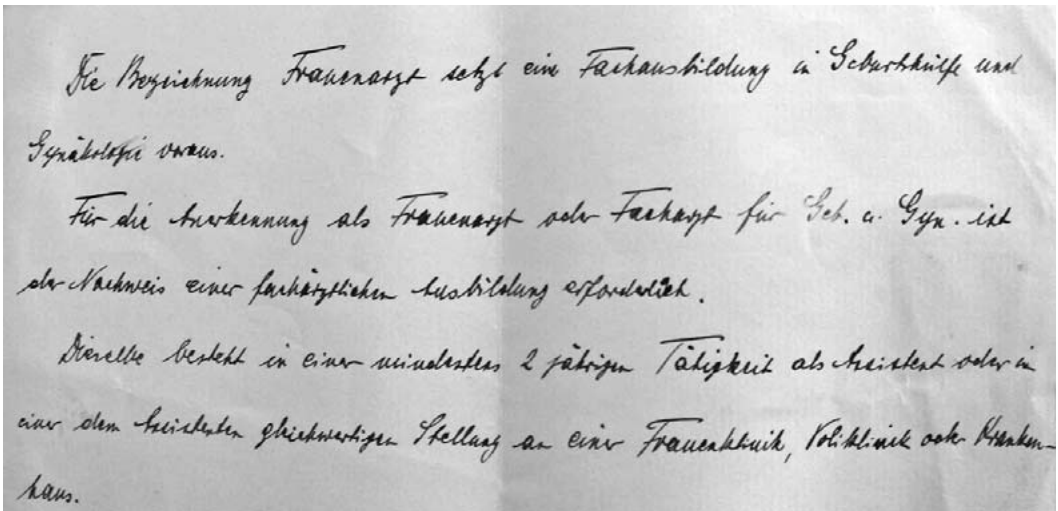 Die Bezeichnung Frauenarzt setzt eine Fachausbildung in Geburtshülfe und
Gynäkologie voraus.
Für die Anerkennung als Frauenarzt oder Facharzt für Geb. u. Gyn. ist
der Nachweis einer fachärztlichen Ausbildung erforderlich.
Dieselbe besteht in einer mindestens 2 jährigen Tätigkeit als Assistent oder in
einer dem Assistenten gleichwertigen Stellung an einer Frauenklinik, Poliklinik oder Kranken-
haus.